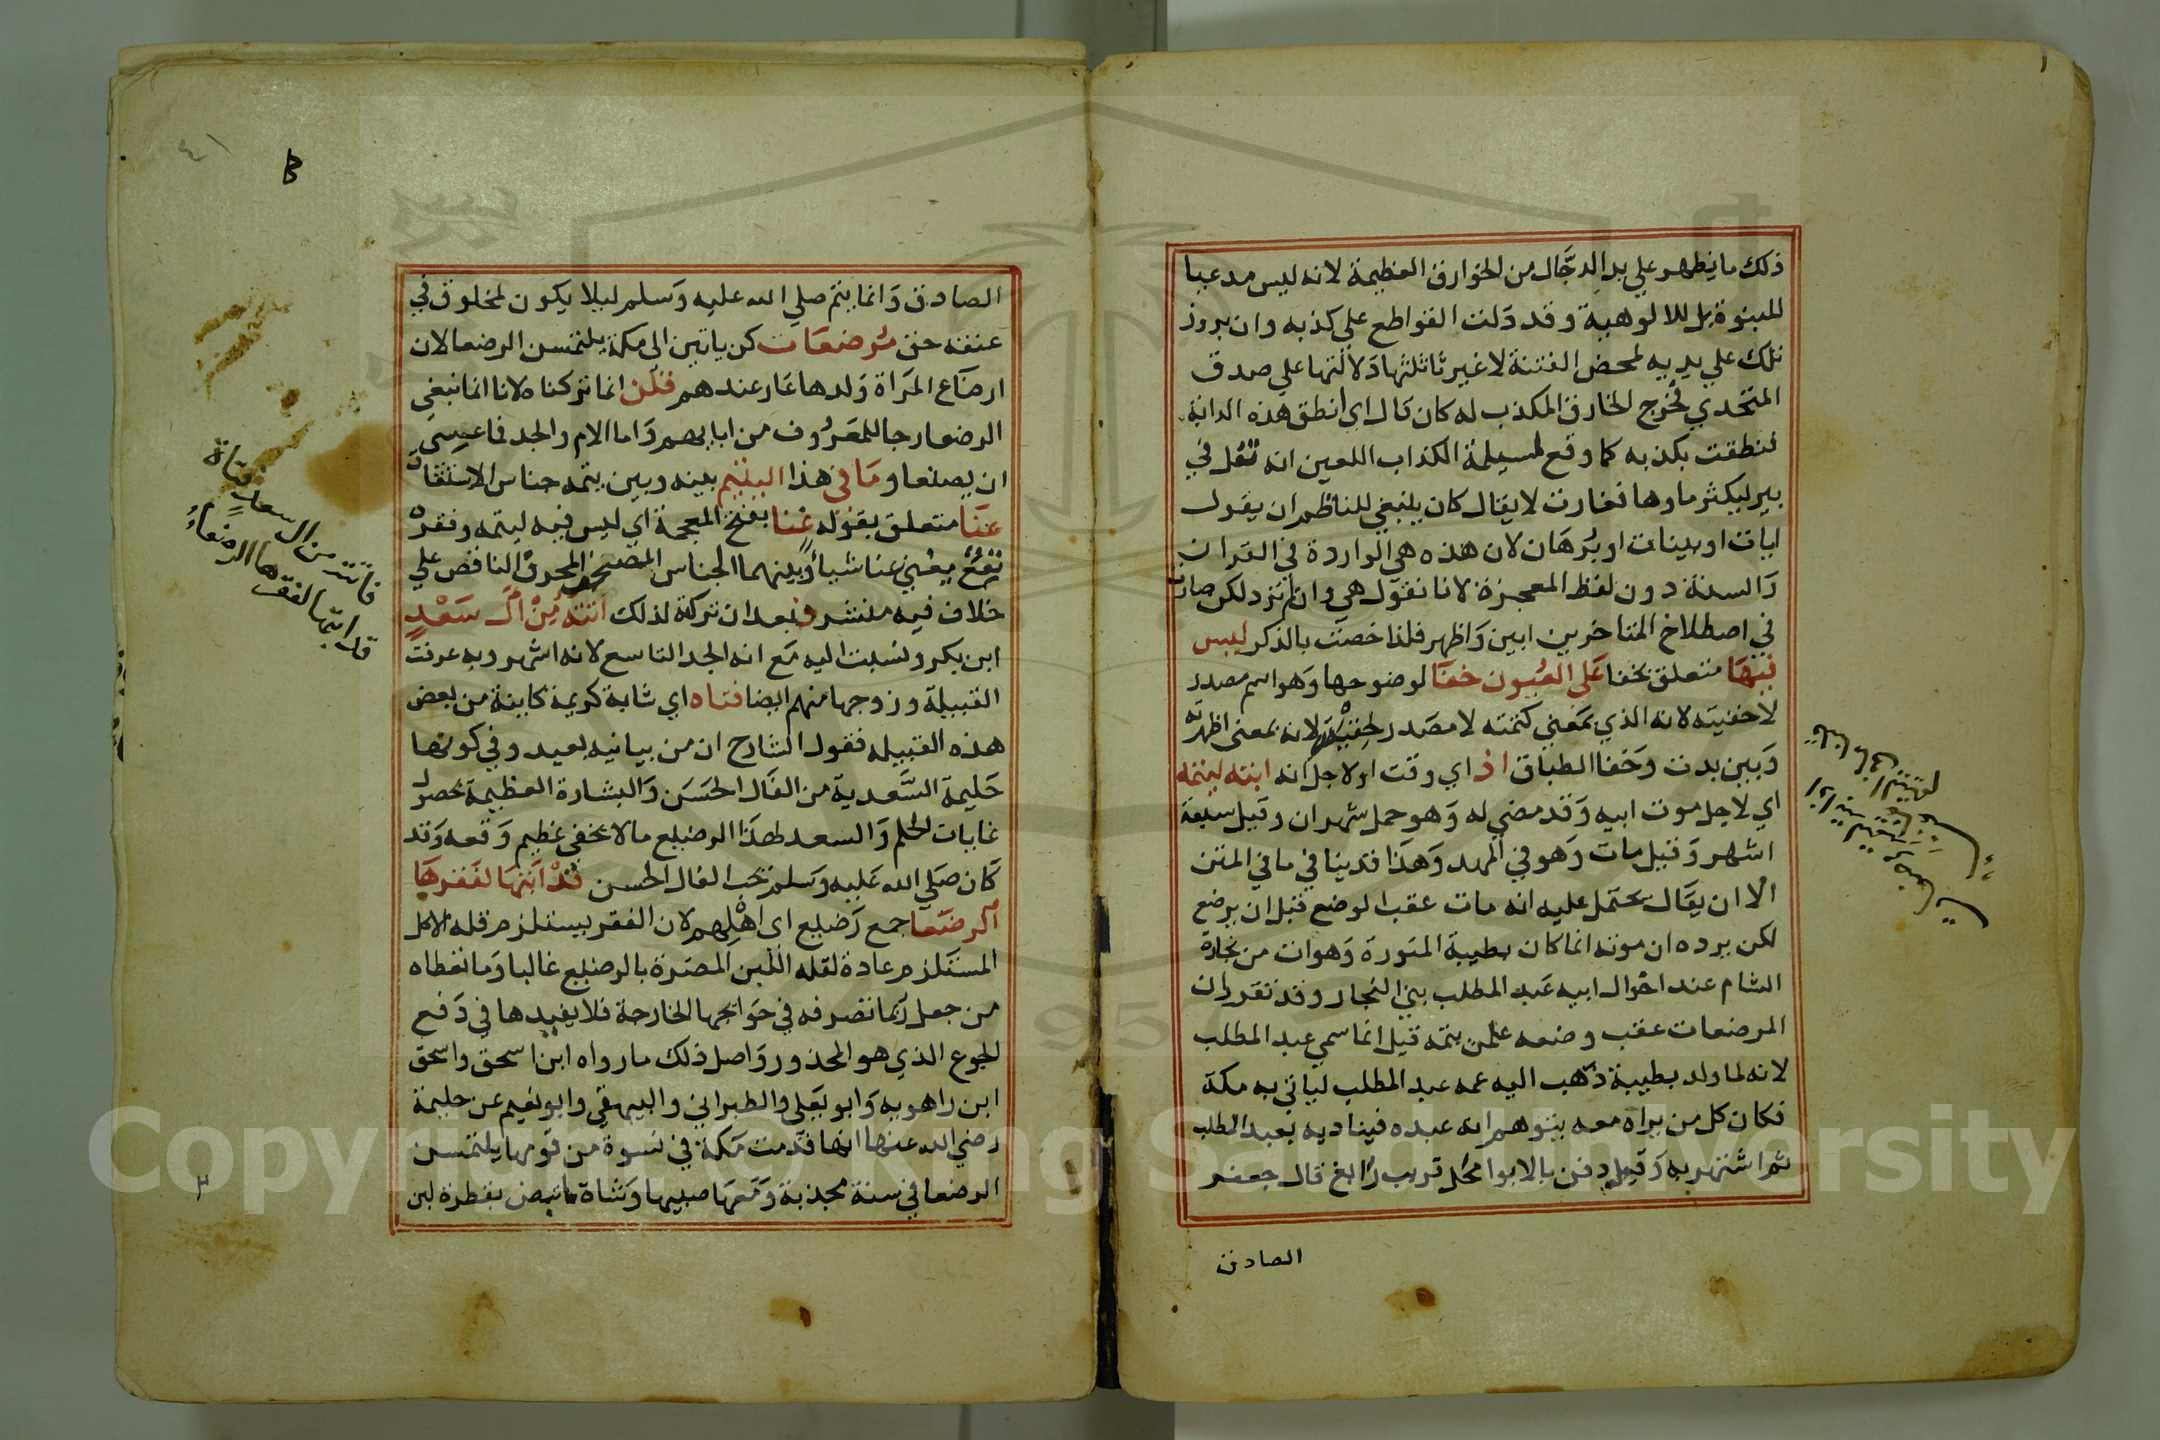 ذلك ما يظهر علي يد الدجَّال من الخوارق العظيمة لانه ليس مدعيا
للنبوة بل للالوهية وقد دَلت القواطع علي كذبه وان بروز
تلك علي يديه لمحض الفتنة لا غير ثا ثلثها دَلالتها علي صدق
المتحدي فخرج الخارق المكذب له كان قال اي انطق هذه الدابة
فنطقت بكذبه كما وقع لمسيلمة الكذاب اللعين انه تفل في
بير ليكثر ماوها فغارت لا يقال كان ينبغي للناظم ان يقول
ايات او بينات او بُرهَان لان هذه هي الواردة في القران
وَالسنة دون لفظ المعجزة لانا نقول هي وان لم ترد لكن صارت
في اصطلاح المتاخرين ابين وَاظهر فلذا خصت بالذكر ليس
فيهَا متعلق بخفا عَلي العُيون خفَا لوضوحها وَهو اسم مصدر
لاخفيته لانه الذي بمَعني كتمته لا مصَدر لخفيته لانه بمعني اظهرته
وَبين بدت وَخفا الطباق اذ اي وقت اولاجل انه ابته ليتمه
اي لاجل موت ابيه وَقد مضي له وَهو حمل شهران وقيل سبعة
اشهر وَقيل مات وَهو في المهد وَهذَا قد ينافي ما في المتن
الا ان يقَال يحتمل عليه انه مات عقب الوضع قبل ان يرضع
لكن يرده ان موته انما كَان بطيبة المنورة وَهو ات من تجارة
الشام عند اخوال ابيه عَبد المطلب بني النجار وقد تقرر ان
المرضعات عقب وضعه علمن يتمه قيل انما سمي عبد المطلب
لانه لما ولد بطيبة ذهب اليه عمه عبد المطلب لياتي به مكة
فكان كل من يراه معه يتوهم انه عبده فيناديه بعبد المطلب
ثم اشتهر به وَقيل دفن بالابوا محل قريب رابغ قال جعفر
الصادق
٤١
الصادق وَانما يتم صلي الله عليه وَسلم ليلا يكون لمخلوق في
عنقه حق مُرضعَات كن ياتين الي مكة يلتمسن الرضعا لان
ارضَاع المَراة وَلدها عَار عندهم قلن انما تركناه لانا انما نبغي
الرضعا رجا للمعَرُوف من ابايهم وَاما الام والجد فما عسي
ان يصنعا وَمَا في هذا اليتيم بينه وبين يتمه جناس الاشتقاق
عنَّا متعلق بقوله غنا بفتح المعجمة اي ليس فيه ليتمه وفقره
نفع يغني عنا شيأ وبينهما الجناس المصحف المحرف الناقص علي
خلاف فيه منتشر فبعد ان تركة لذلك اتته مِنْ آلِ سَعْدٍ
ابن بكر ونسبت اليه مَع انه الجد التاسع لانه اشهر وبه عرفت
القبيلة وزوجها منهم ايضا فتاه اي شابة كريمة كاينة من بعض
هذه القبيله فقول الشارح ان من بيانيه بعيد وفي كونها
حَليمة السَّعدية من الفَال الحسَن وَالبشارة العظيمة بحصول
غايات الحلم وَالسعد لهذَا الرضيع ما لا يخفي عظيم وَقعه وَقد
كَان صلي الله عَليه وَسلم يحب الفال الحسن قَدْ اَبَتْهَا لفَقرهَا
الرضَعا جمع رَضيع اي اهلهم لان الفقر يستلزم قله الاكل
المستَلزم عادة لقله اللبن المضرة بالرضيع غالبا وَما تعطاه
من جعل رُبما تصرفه في حَوائجها الخارجة فلا يفيدها في دَفع
الجوع الذي هو المحذور وَاصل ذلك ما رواه ابن اسحق واسحق
ابن راهويه وَابو يعَلي والطبراني والبيهقي وابو نعيم عن حليمة
رَضي الله عنها انها قدمت مَكة في نسوة من قومها يلتمسن
الرضعا في سنة مجدبة وَمَعهَا صبيها وَشاة ما تبض بقطرة لبن
فاتته من ال سعد فتاة
قد ابتها لفقرها الرضعاءُ
Copyright © King Saud University